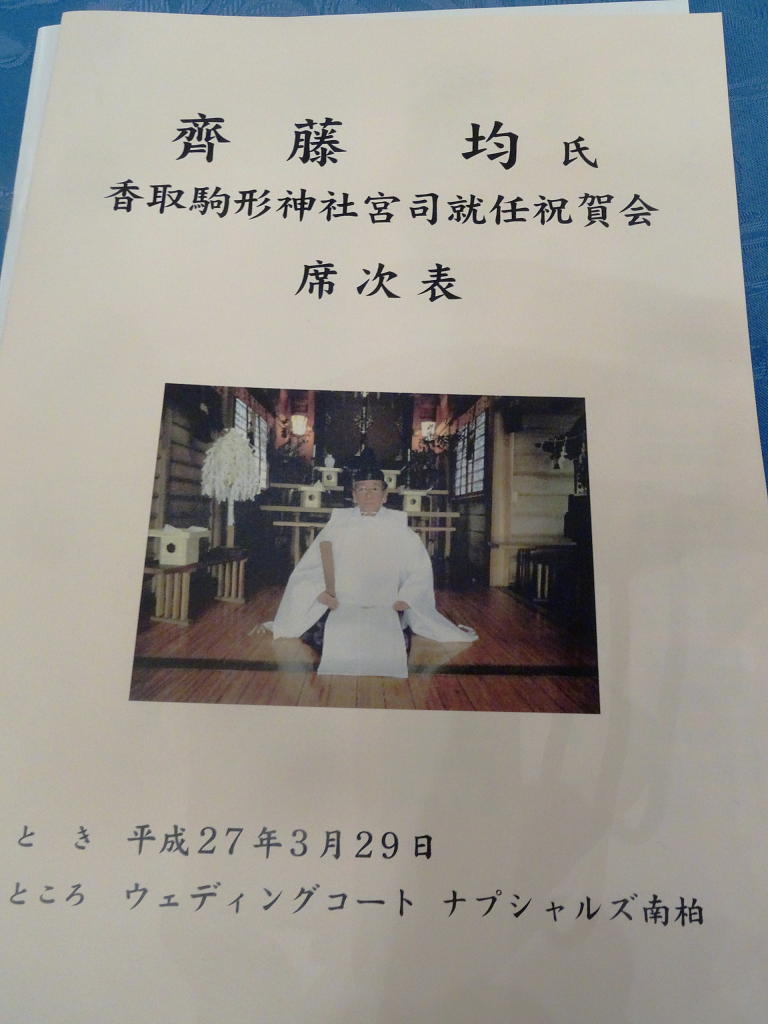 齊藤 均 氏
香取駒形神社宮司就任祝賀会
席次表
とき 平成27年3月29日
ところ ウェディングコート ナプシャルズ南柏